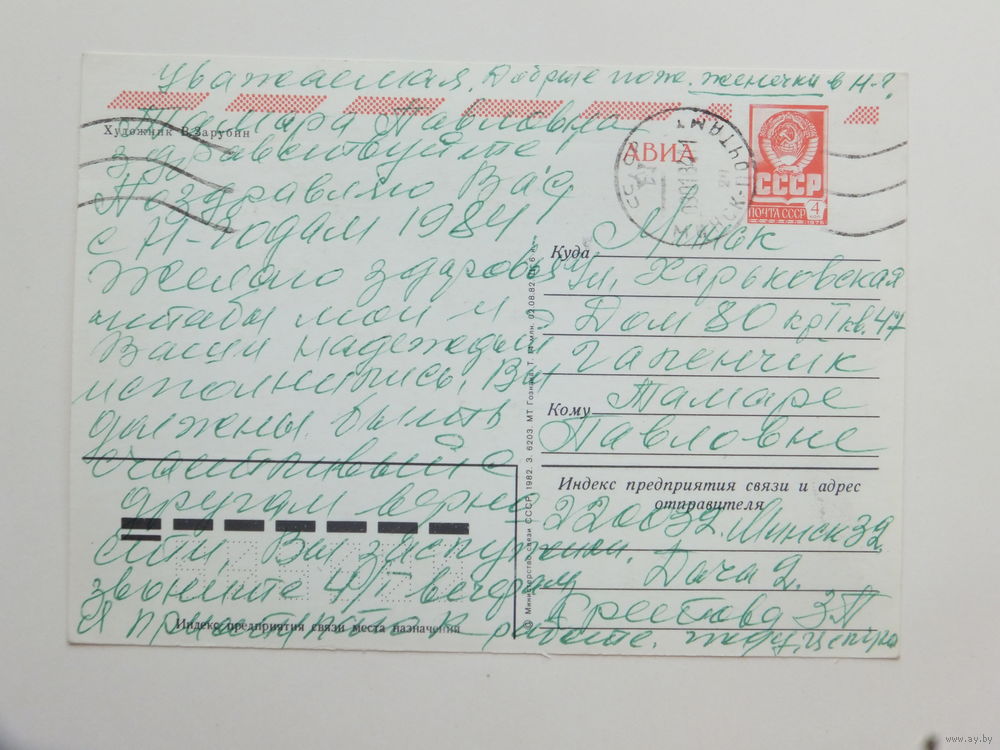 Уважаемая Добрые пож. женочки в Н-г.
Художник В.Зарубин
Тамара Павловна
здравствуйте
Поздравляю Вас
с Н-годам 1984
Желаю здаровья
штабы мои и
Ваши надежды
исполнились. Вы
должены быть
счастливый с
другам верна
сти, Вы заслужили.
звоните 4/I вечерам
Я работе. жду,
АВИА
СССР
ПОЧТА СССР 4
МИНСК-ПОЧТАМТ
Куда Минск
ул. Харьковская
Дом 80 кр I кв. 47
Гапенчик
Кому Тамаре
Павловне
Индекс предприятия связи и адрес
отправителя
220032. Минск 32
Дача 2.
Крестова З П
Индекс предприятия связи места назначения
© Министерство связи СССР. 1982. З. 6203. МТ Гознака. 02.08.82
www.ay.by